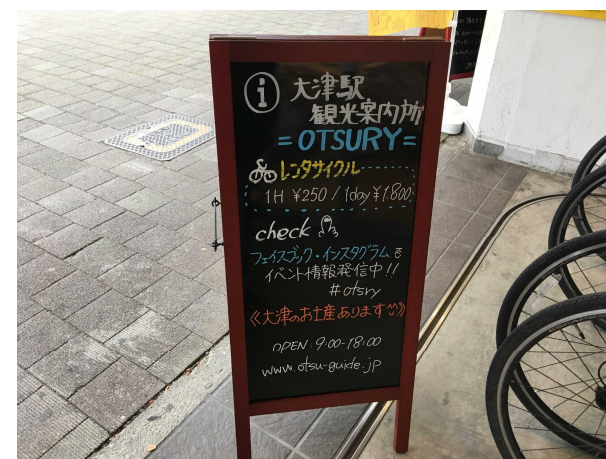 i 大津駅
観光案内所
=OTSURY=
レンタサイクル
1H ¥250 / 1day ¥1.800
check
フェイスブック・インスタグラムも
イベント情報発信中!!
#otsry
《大津のお土産あります^^》
OPEN:9:00-18:00
www.otsu-guide.jp